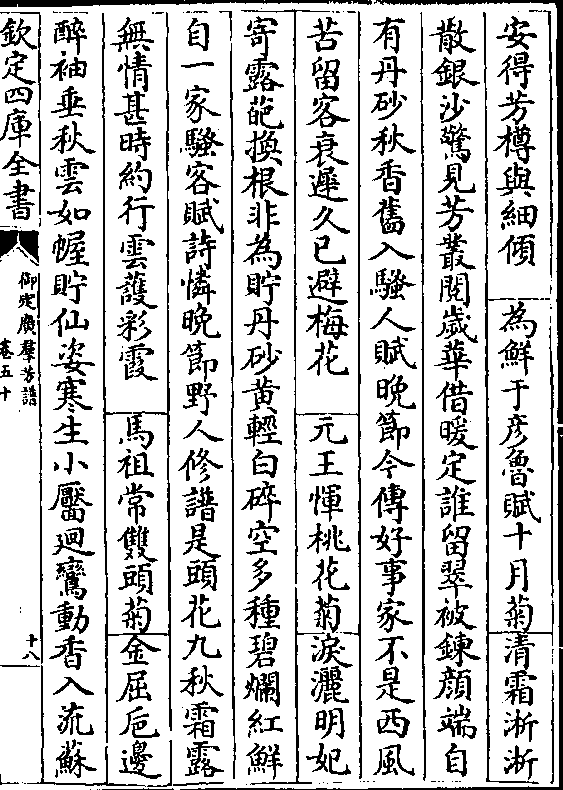 安得芳樽與細傾　為鮮于彥魯賦十月菊清霜淅淅
散銀沙驚見芳叢閱歲華借暖定誰留翠被鍊顔端自
有丹砂秋香舊入騷人賦晚節今傳好事家不是西風
苦留客衰遲久已避梅花　元王惲桃花菊淚灑明妃
寄露葩換根非為貯丹砂黄輕白碎空多種碧爛紅鮮
自一家騷客賦詩憐晚節野人修譜是頭花九秋霜露
無情甚時約行雲護彩霞　馬祖常雙頭菊金屈巵邊
醉袖垂秋雲如幄貯仙姿寒生小靨迴鸞動香入流蘇
欽定四庫全書
御定廣羣芳譜
卷五十
十八